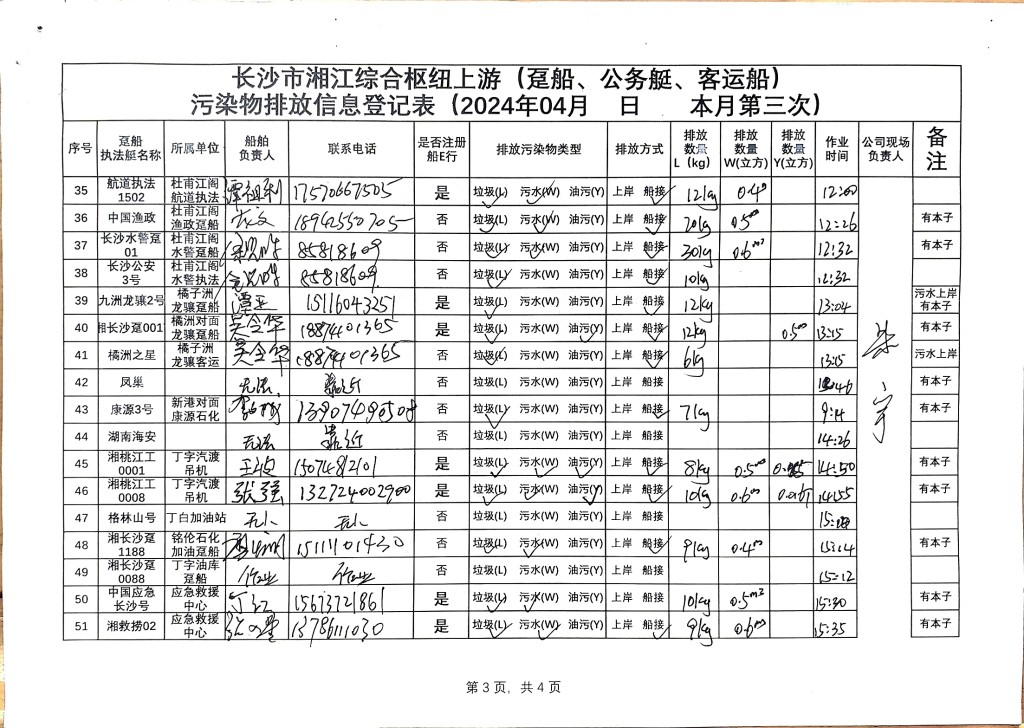 长沙市湘江综合枢纽上游（趸船、公务艇、客运船）
污染物排放信息登记表（2024年04月 日 本月第三次）
序号 趸船执法艇名称 所属单位 船舶负责人 联系电话 是否注册船E行 排放污染物类型 排放方式 排放数量L（kg） 排放数量W(立方) 排放数量Y(立方) 作业时间 公司现场负责人 备注
35 航道执法1502 杜甫江阁航道执法 谭祖利 17570667505 是 垃圾(L) 污水(W) 油污(Y) 上岸 船接 12kg 0.4 12:00
36 中国渔政 杜甫江阁渔政趸船 18942550705 否 垃圾(L) 污水(W) 油污(Y) 上岸 船接 20kg 0.5 12:26 有本子
37 长沙水警趸01 杜甫江阁水警趸船 85818609 否 垃圾(L) 污水(W) 油污(Y) 上岸 船接 30kg 0.6m³ 12:32 有本子
38 长沙公安3号 杜甫江阁水警执法 85818609 否 垃圾(L) 污水(W) 油污(Y) 上岸 船接 10kg 12:32
39 九洲龙骧2号 橘子洲龙骧趸船 谭正 15116043251 是 垃圾(L) 污水(W) 油污(Y) 上岸 船接 12kg 13:04 污水上岸有本子
40 湘长沙趸001 橘洲对面龙骧趸船 吴全华 18874401365 是 垃圾(L) 污水(W) 油污(Y) 上岸 船接 12kg 0.5 13:15 有本子
41 橘洲之星 橘子洲龙骧客运 吴全华 18874401365 否 垃圾(L) 污水(W) 油污(Y) 上岸 船接 6kg 13:15 污水上岸
42 凤巢 无法 靠近 否 垃圾(L) 污水(W) 油污(Y) 上岸 船接 有本子
43 康源3号 新港对面康源石化 否 垃圾(L) 污水(W) 油污(Y) 上岸 船接 7kg 有本子
44 湖南海安 无法 靠近 否 垃圾(L) 污水(W) 油污(Y) 上岸 船接 14:26
45 湘桃江工0001 丁字汽渡吊机 15074812101 是 垃圾(L) 污水(W) 油污(Y) 上岸 船接 8kg 0.5 14:50 有本子
46 湘桃江工0008 丁字汽渡吊机 张强 132724002900 是 垃圾(L) 污水(W) 油污(Y) 上岸 船接 10kg 0.6 14:55 有本子
47 格林山号 丁白加油站 无人 无人 否 垃圾(L) 污水(W) 油污(Y) 上岸 船接
48 湘长沙趸1188 铭伦石化加油趸船 15111101430 否 垃圾(L) 污水(W) 油污(Y) 上岸 船接 9kg 0.4 15:14 有本子
49 湘长沙趸0088 丁字油库趸船 作业 作业 否 垃圾(L) 污水(W) 油污(Y) 上岸 船接 15:12
50 中国应急长沙号 应急救援中心 15673721861 是 垃圾(L) 污水(W) 油污(Y) 上岸 船接 10kg 0.5m³ 15:30 有本子
51 湘救捞02 应急救援中心 13786111030 是 垃圾(L) 污水(W) 油污(Y) 上岸 船接 9kg 0.6 15:35 有本子
第 3 页，共 4 页